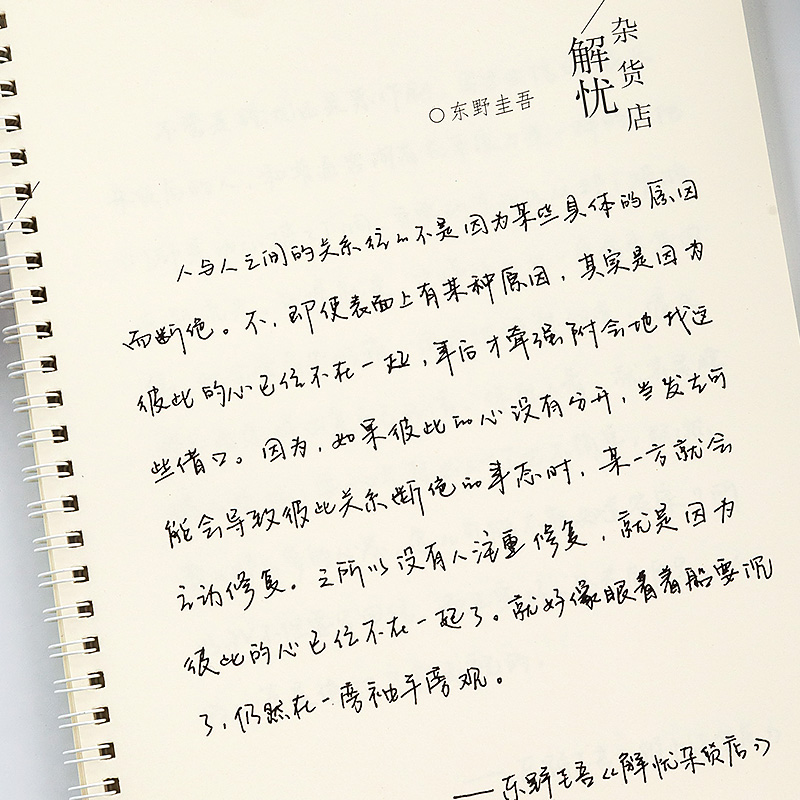 解忧
杂货店
○东野圭吾
人与人之间的关系往往不是因为某些具体的原因
而断绝。不,即使表面上有某种原因,其实是因为
彼此的心已经不在一起,事后才牵强附会地找这
些借口。因为,如果彼此的心没有分开,当发生可
能会导致彼此关系断绝的事态时,某一方就会
主动修复。之所以没有人注重修复,就是因为
彼此的心已经不在一起了。就好像眼看着船要沉
了,仍然在一旁袖手旁观。
——东野圭吾《解忧杂货店》